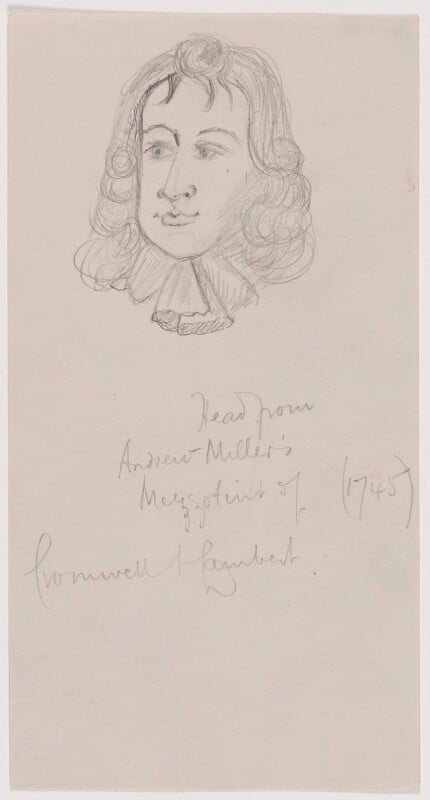 Head from
Andrew Miller's
Mezzotint of (1745)
Cromwell & Lambert